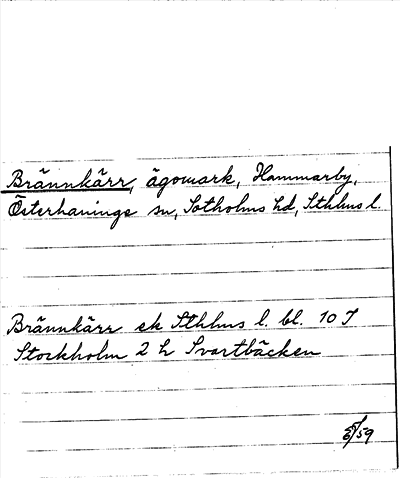 Brännkärr, ägomark, Hammarby,
Österhanings sn, Sotholms hd, Sthlms l.
Brännkärr ek Sthlms l. bl. 10 I
Stockholm 2 h Svartbäcken
/59